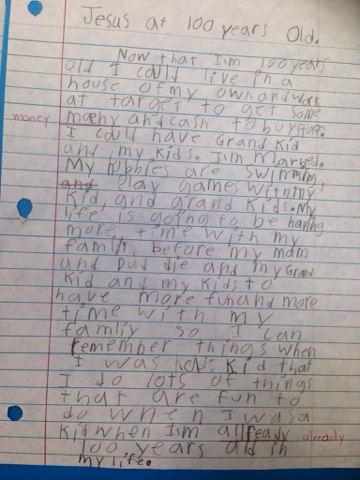 Jesus at 100 years Old.
Now that I'm 100 years
old I could live in a
house of my own and work
at target to get some
money mochy and cash to buy stuff.
I could have Grand Kid
and my kids. I'm marred.
My hobbies are swimming
and play games with my
Kid, and grand kids. My
life, is going to be having
more time with my
family, before my mom
and Dad die and my Grand
Kid and my kids to
have more fun and more
time with my
family so I can
remember things when
I was a kid that
I do lots of things
that are fun to
do when I was a
kid when I'm allready already
100 years old in
my life.